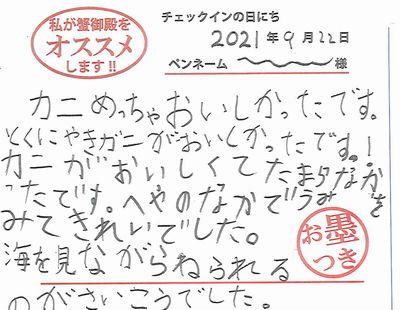 私が蟹御殿を
オススメ
します!!
チェックインの日にち
2021年9月22日
ペンネーム 様
カニめっちゃおいしかったです。
とくにやきガニがおいしかったです。!
カニがおいしくてたまらなか
ったです。へやのなかでうみを
みてきれいでした。
海を見ながらねられる
のがさいこうでした。
お墨
つき